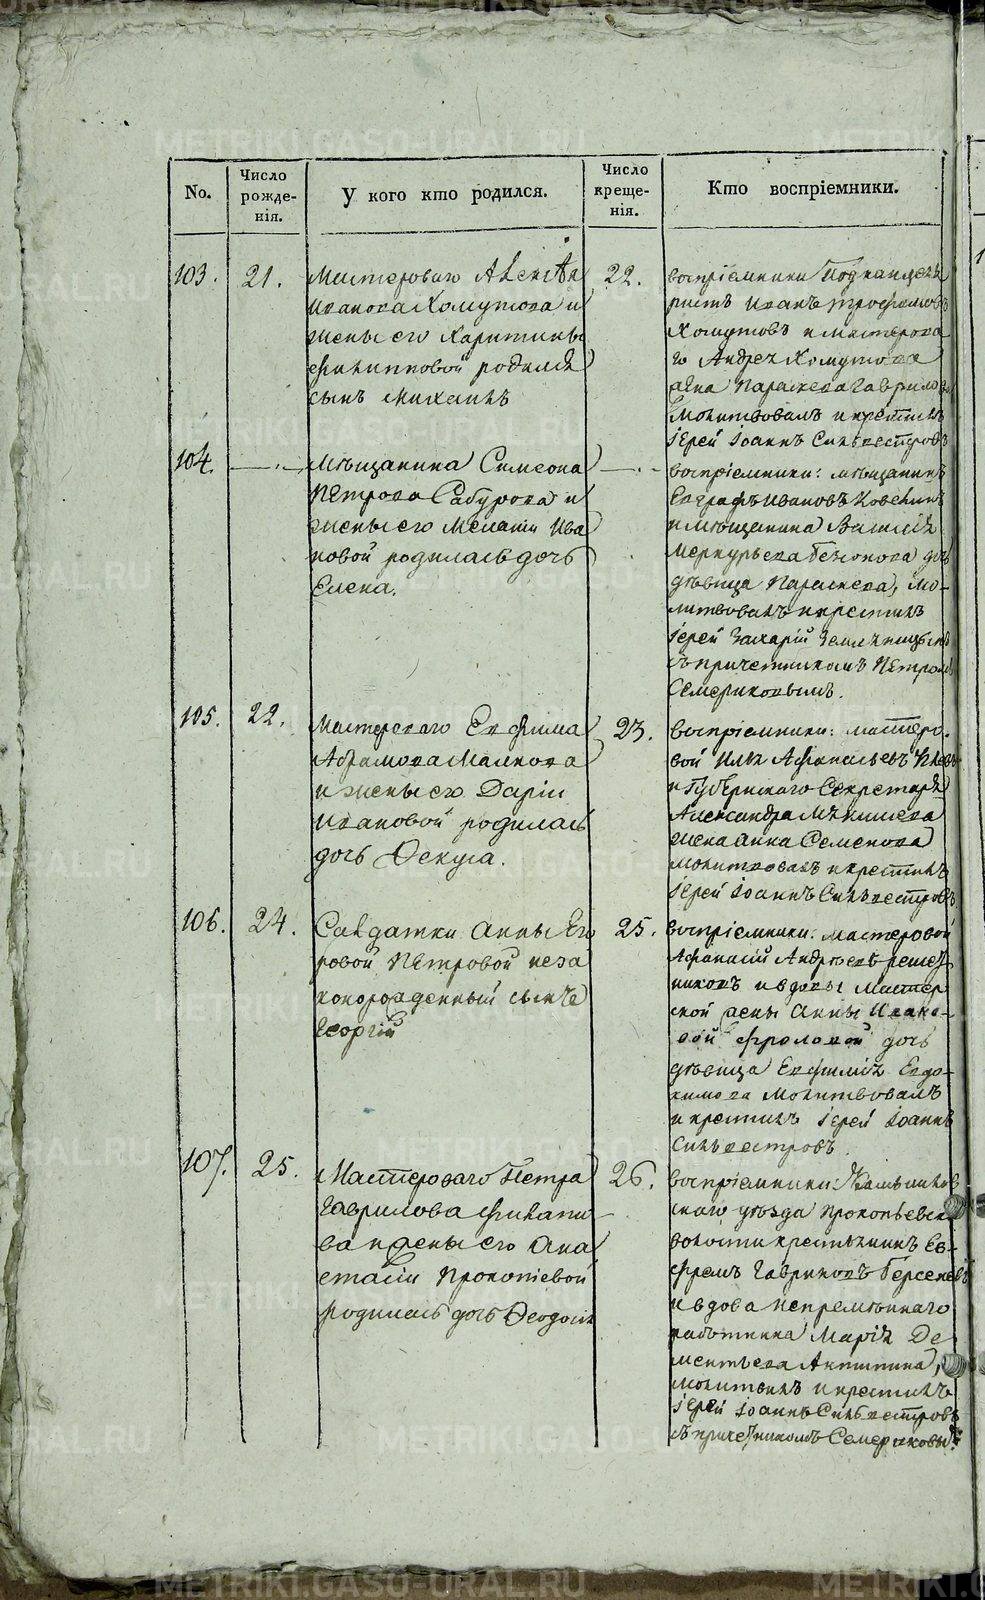 No.
Число рожде-
нія.
У кого кто родился.
Число креще-
нія.
Кто воспріемники.
103.
21.
Мастероваго
Иванова Хомутова и
жены его Харитины
Филипповой родился
сынъ Михаилъ
22.
воспріемники Подканцеля
ристъ Иванъ Трофимовъ
Хомутовъ и мастерова
го Андрея Хомутова
жена Параскева Гаврилова
Молитвовалъ и крестилъ
іерей Іоаннъ Сильвестровъ
104.
—·—
Мѣщанина Симеона
Петрова Сабурова и
жены его Меланіи Ива
новой родилась дочь
Елена.
—·—
воспріемники: мѣщанинъ
Евграфъ Ивановъ
и мѣщанина Василія
Меркурьева дочь
дѣвица Параскева, Мо-
литвовалъ и крестилъ
іерей Захарій
съ причетникомъ Петромъ
Семериковымъ.
105.
22.
Мастероваго Евфима
Абрамова Малкова
и жены его Даріи
Ивановой родилась
дочь Ѳекла.
23.
воспріемники: мастеро-
вой Илья Афанасьевъ
и Губернскаго Секретаря
Александра
жена Анна Семенова
Молитвовалъ и крестилъ
іерей Іоаннъ Сильвестровъ
106.
24.
Салдатки Анны Его
ровой Петровой неза
конорожденный сынъ
Георгій
25.
воспріемники: мастеровой
Афанасій Андреевъ Решет
никовъ и вдовы мастер
ской жены Анны Ивано-
вой Фроловой дочь
дѣвица Евфимія Евдо-
кимова Молитвовалъ
и крестилъ іерей Іоаннъ
Сильвестровъ.
107.
25.
Мастероваго Петра
Гаврилова
ва и жены его Ана
стасіи Прокопіевой
родилась дочь Ѳеодосія
26.
воспріемники: Камышлов
скаго уѣзда Прокопьевск
волости крестьянинъ Ев-
фремъ Гавриловъ Берсеневъ
и вдова непремѣннаго
работника Марія Де
ментьева Антипина,
молитвилъ и крестилъ
іерей Іоаннъ Сильвестровъ
съ причетникомъ Семериковы